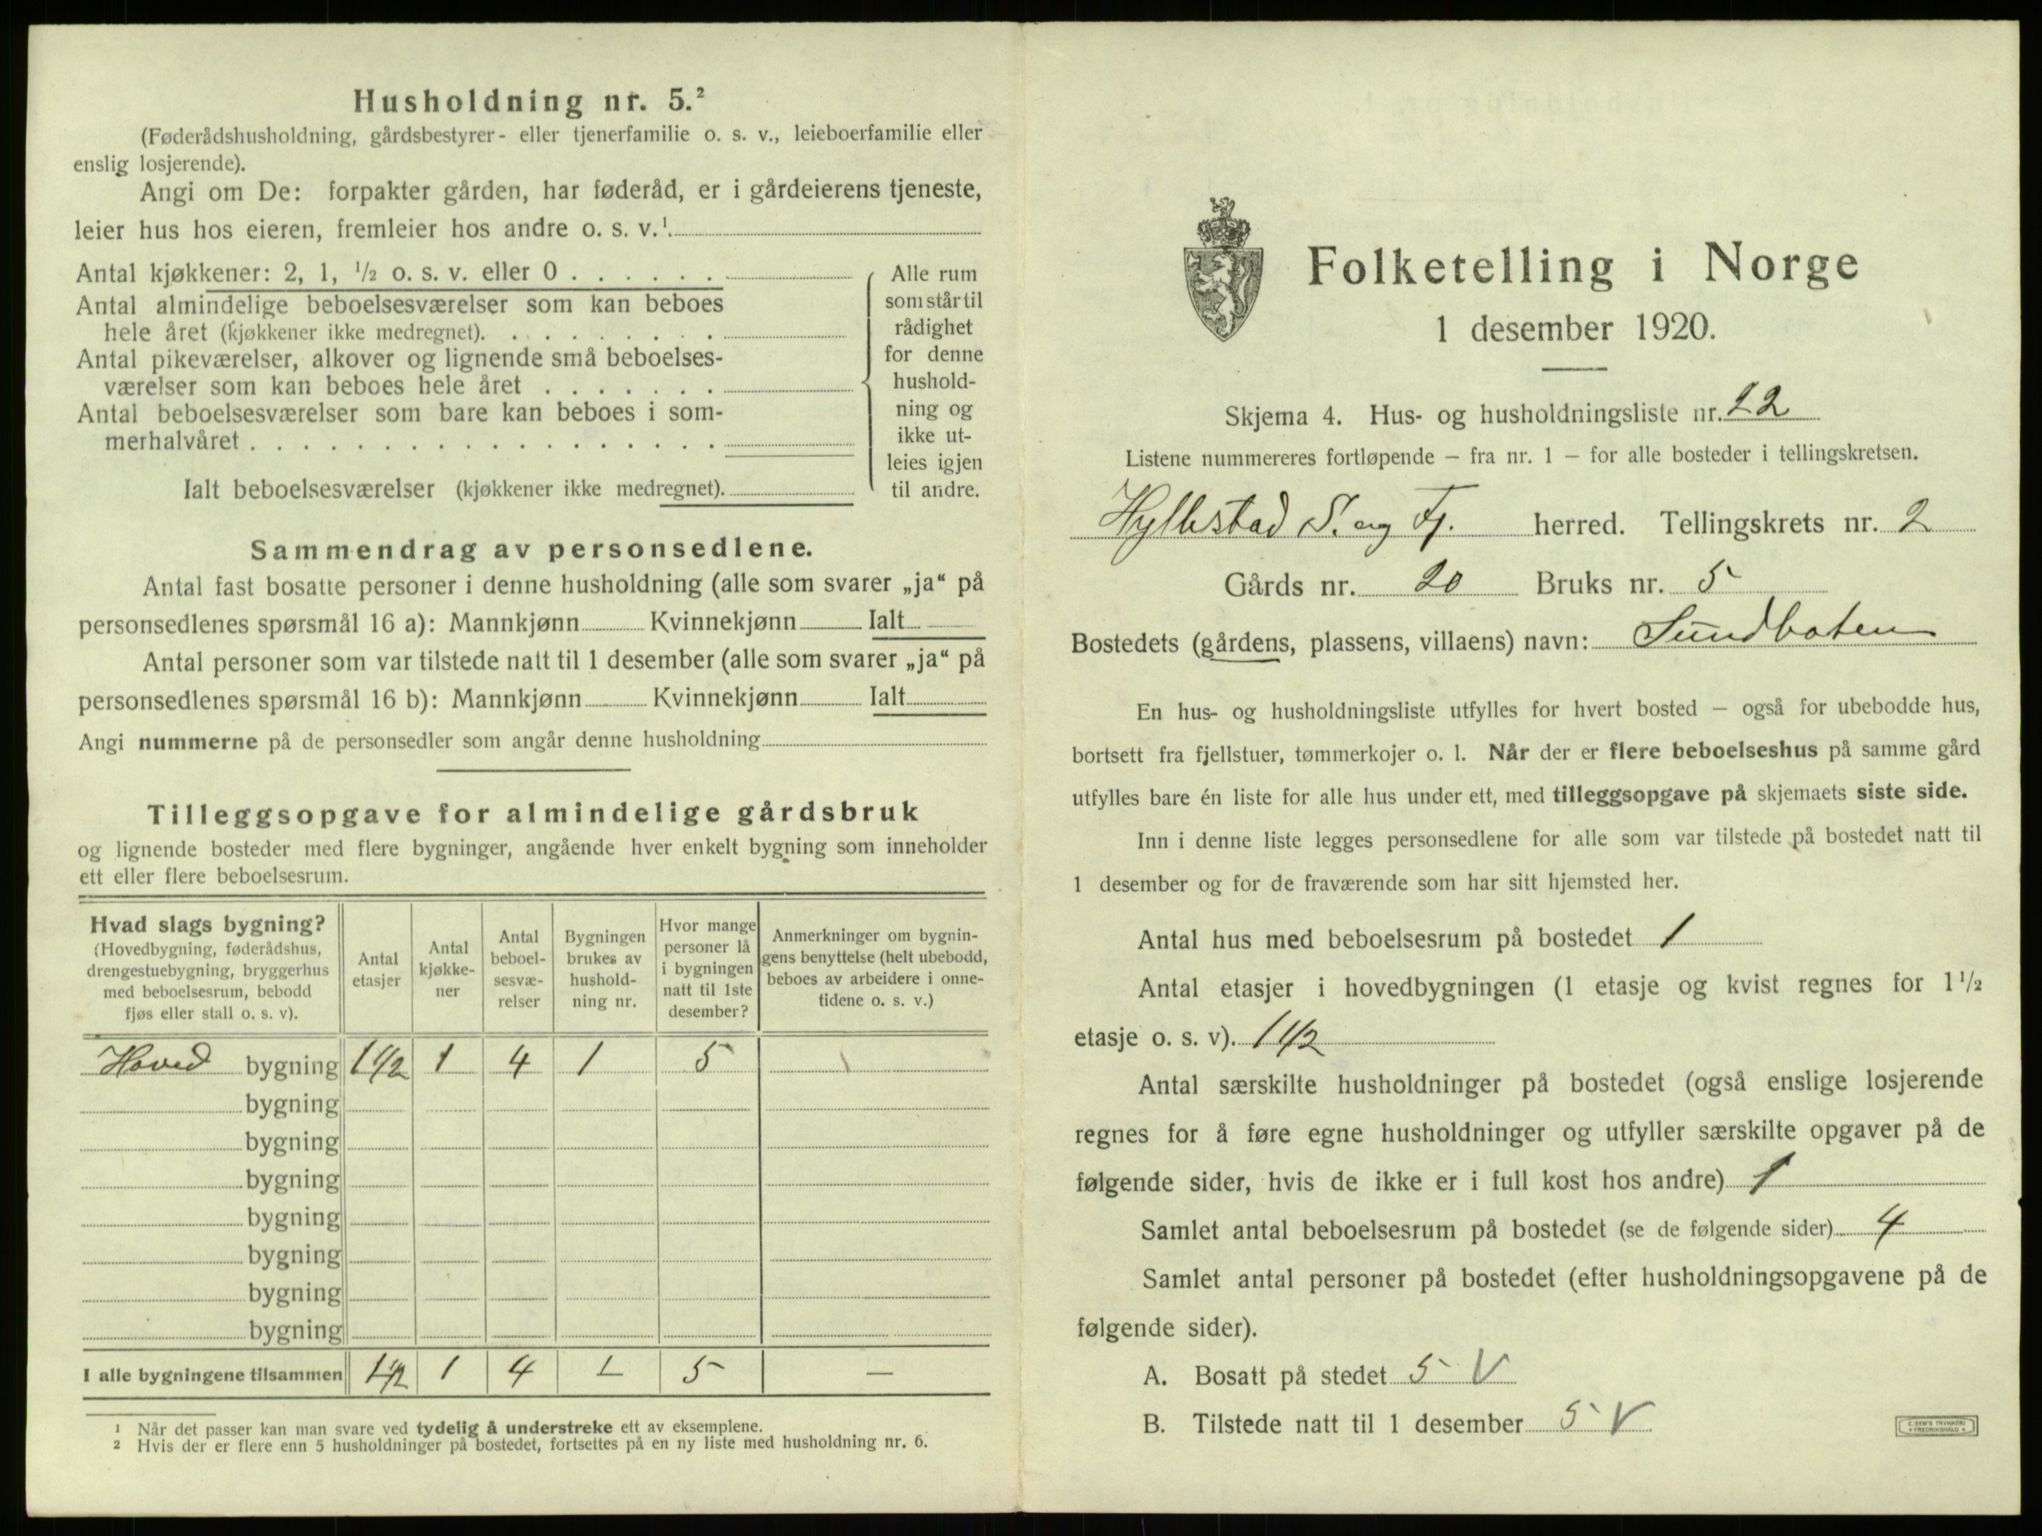 Husholdning nr. 5.²
(Føderådshusholdning, gårdsbestyrer- eller tjenerfamilie o. s. v., leieboerfamilie eller
enslig losjerende).
Angi om De: forpakter gården, har føderåd, er i gårdeierens tjeneste,
leier hus hos eieren, fremleier hos andre o. s. v.¹
Antal kjøkkener: 2, 1, ½ o. s. v. eller 0 . . . . . .
Antal almindelige beboelsesværelser som kan beboes
hele året (kjøkkener ikke medregnet). . . . . . . . .
Antal pikeværelser, alkover og lignende små beboelses-
værelser som kan beboes hele året . . . . . . .
Antal beboelsesværelser som bare kan beboes i som-
merhalvåret . . . . . . . . . . . . . . . . . .
Ialt beboelsesværelser (kjøkkener ikke medregnet).
Alle rum
som står til
rådighet
for denne
hushold-
ning og
ikke ut-
leies igjen
til andre.
Sammendrag av personsedlene.
Antal fast bosatte personer i denne husholdning (alle som svarer „ja“ på
personsedlenes spørsmål 16 a): Mannkjønn Kvinnekjønn Ialt
Antal personer som var tilstede natt til 1 desember (alle som svarer „ja“ på
personsedlenes spørsmål 16 b): Mannkjønn Kvinnekjønn Ialt
Angi nummerne på de personsedler som angår denne husholdning
Tilleggsopgave for almindelige gårdsbruk
og lignende bosteder med flere bygninger, angående hver enkelt bygning som inneholder
ett eller flere beboelsesrum.
Hvad slags bygning?
(Hovedbygning, føderådshus,
drengestuebygning, bryggerhus
med beboelsesrum, bebodd
fjøs eller stall o. s. v).
Antal
etasjer
Antal
kjøkke-
ner
Antal
beboel-
sesvæ-
relser
Bygningen
brukes av
hushold-
ning nr.
Hvor mange
personer lå
i bygningen
natt til 1ste
desember?
Anmerkninger om bygnin-
gens benyttelse (helt ubebodd,
beboes av arbeidere i onne-
tidene o. s. v.)
Hoved bygning 1 1/2 1 4 1 5
bygning
bygning
bygning
bygning
bygning
bygning
bygning
I alle bygningene tilsammen 1 1/2 1 4 1 5 —
¹ Når det passer kan man svare ved tydelig å understreke ett av eksemplene.
² Hvis der er flere enn 5 husholdninger på bostedet, fortsettes på en ny liste med husholdning nr. 6.
Folketelling i Norge
1 desember 1920.
Skjema 4. Hus- og husholdningsliste nr. 22
Listene nummereres fortløpende – fra nr. 1 – for alle bosteder i tellingskretsen.
Hyllestad S. og Fj. herred. Tellingskrets nr. 2
Gårds nr. 20 Bruks nr. 5
Bostedets (gårdens, plassens, villaens) navn: Sundboten
En hus- og husholdningsliste utfylles for hvert bosted – også for ubebodde hus,
bortsett fra fjellstuer, tømmerkojer o. l. Når der er flere beboelseshus på samme gård
utfylles bare én liste for alle hus under ett, med tilleggsopgave på skjemaets siste side.
Inn i denne liste legges personsedlene for alle som var tilstede på bostedet natt til
1 desember og for de fraværende som har sitt hjemsted her.
Antal hus med beboelsesrum på bostedet 1
Antal etasjer i hovedbygningen (1 etasje og kvist regnes for 1 ½
etasje o. s. v). 1 1/2
Antal særskilte husholdninger på bostedet (også enslige losjerende
regnes for å føre egne husholdninger og utfyller særskilte opgaver på de
følgende sider, hvis de ikke er i full kost hos andre) 1
Samlet antal beboelsesrum på bostedet (se de følgende sider) 4
Samlet antal personer på bostedet (efter husholdningsopgavene på de
følgende sider).
A. Bosatt på stedet 5 V
B. Tilstede natt til 1 desember 5 V